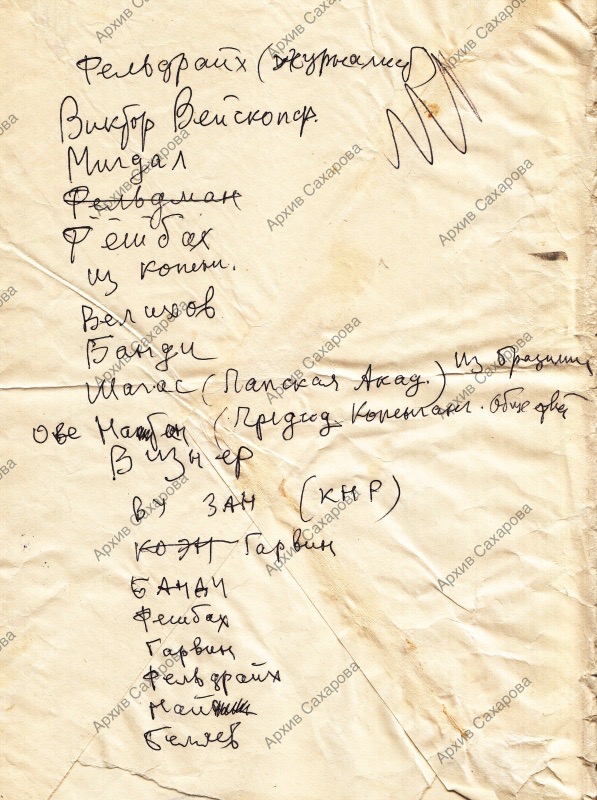 Фельдрайх (журналист)
Виктор Вейскопф.
Мигдал
Фельдман
Фешбах
из копенг.
Велихов
Банди
Шагас (Папская Акад.) из бразилии
Ове (Председ Копенгаген. Обще
Визнер
ВУ ЗАН (КНР)
КОЭН Гарвин
БАНДИ
Фешбах
Гарвин
Фельдрайх
Най
Беляев
Архив Сахарова